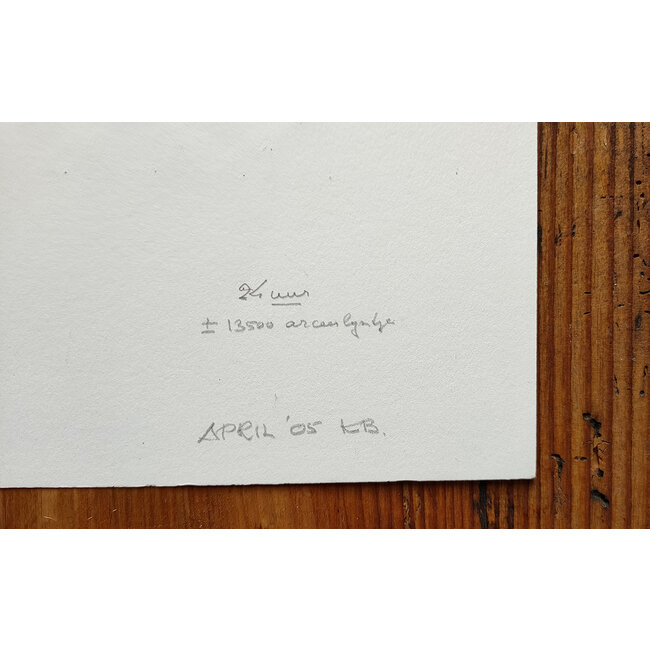 24 uur
± 13500
APRIL '05 KB.